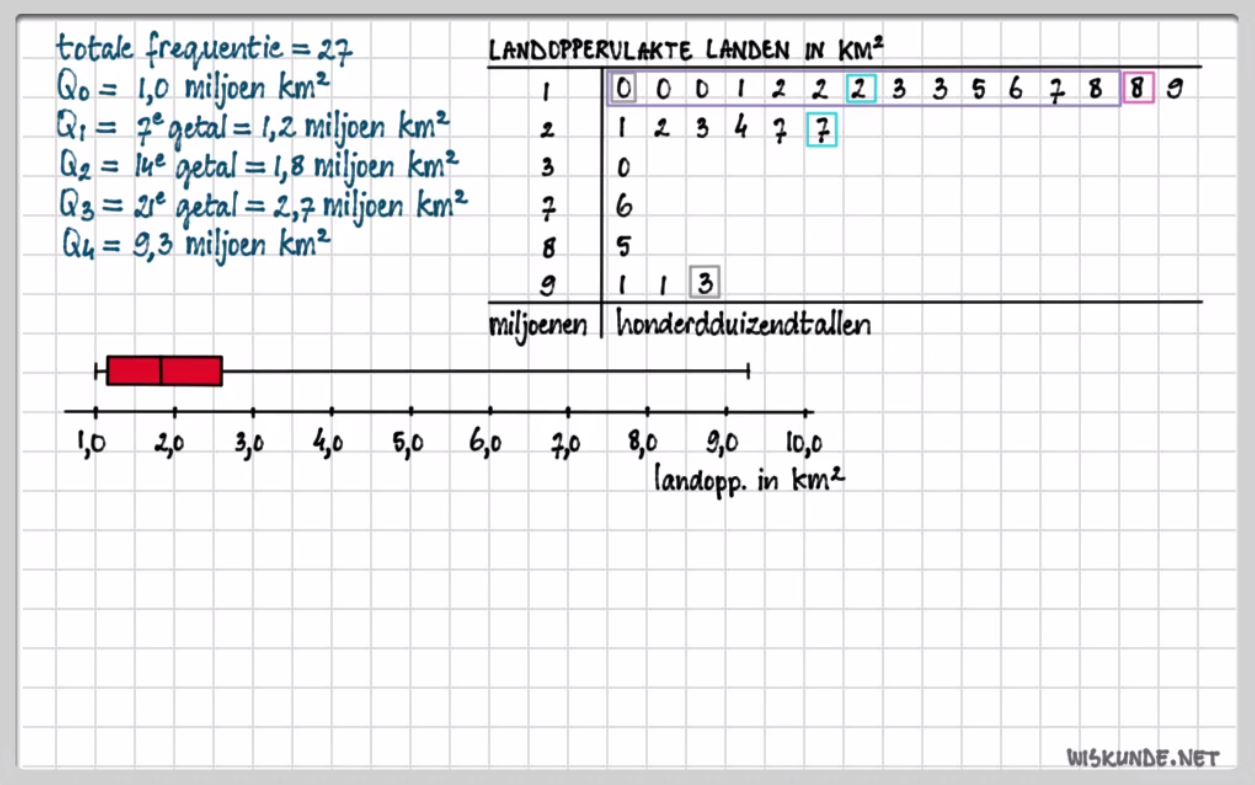 totale frequentie = 27
Q0 = 1,0 miljoen km²
Q1 = 7e getal = 1,2 miljoen km²
Q2 = 14e getal = 1,8 miljoen km²
Q3 = 21e getal = 2,7 miljoen km²
Q4 = 9,3 miljoen km²
LANDOPPERVLAKTE LANDEN IN KM²
1 | 0 0 0 1 2 2 2 3 3 5 6 7 8 8 9
2 | 1 2 3 4 7 7
3 | 0
7 | 6
8 | 5
9 | 1 1 3
miljoenen | honderdduizendtallen
1,0 2,0 3,0 4,0 5,0 6,0 7,0 8,0 9,0 10,0
landopp. in km²
WISKUNDE.NET